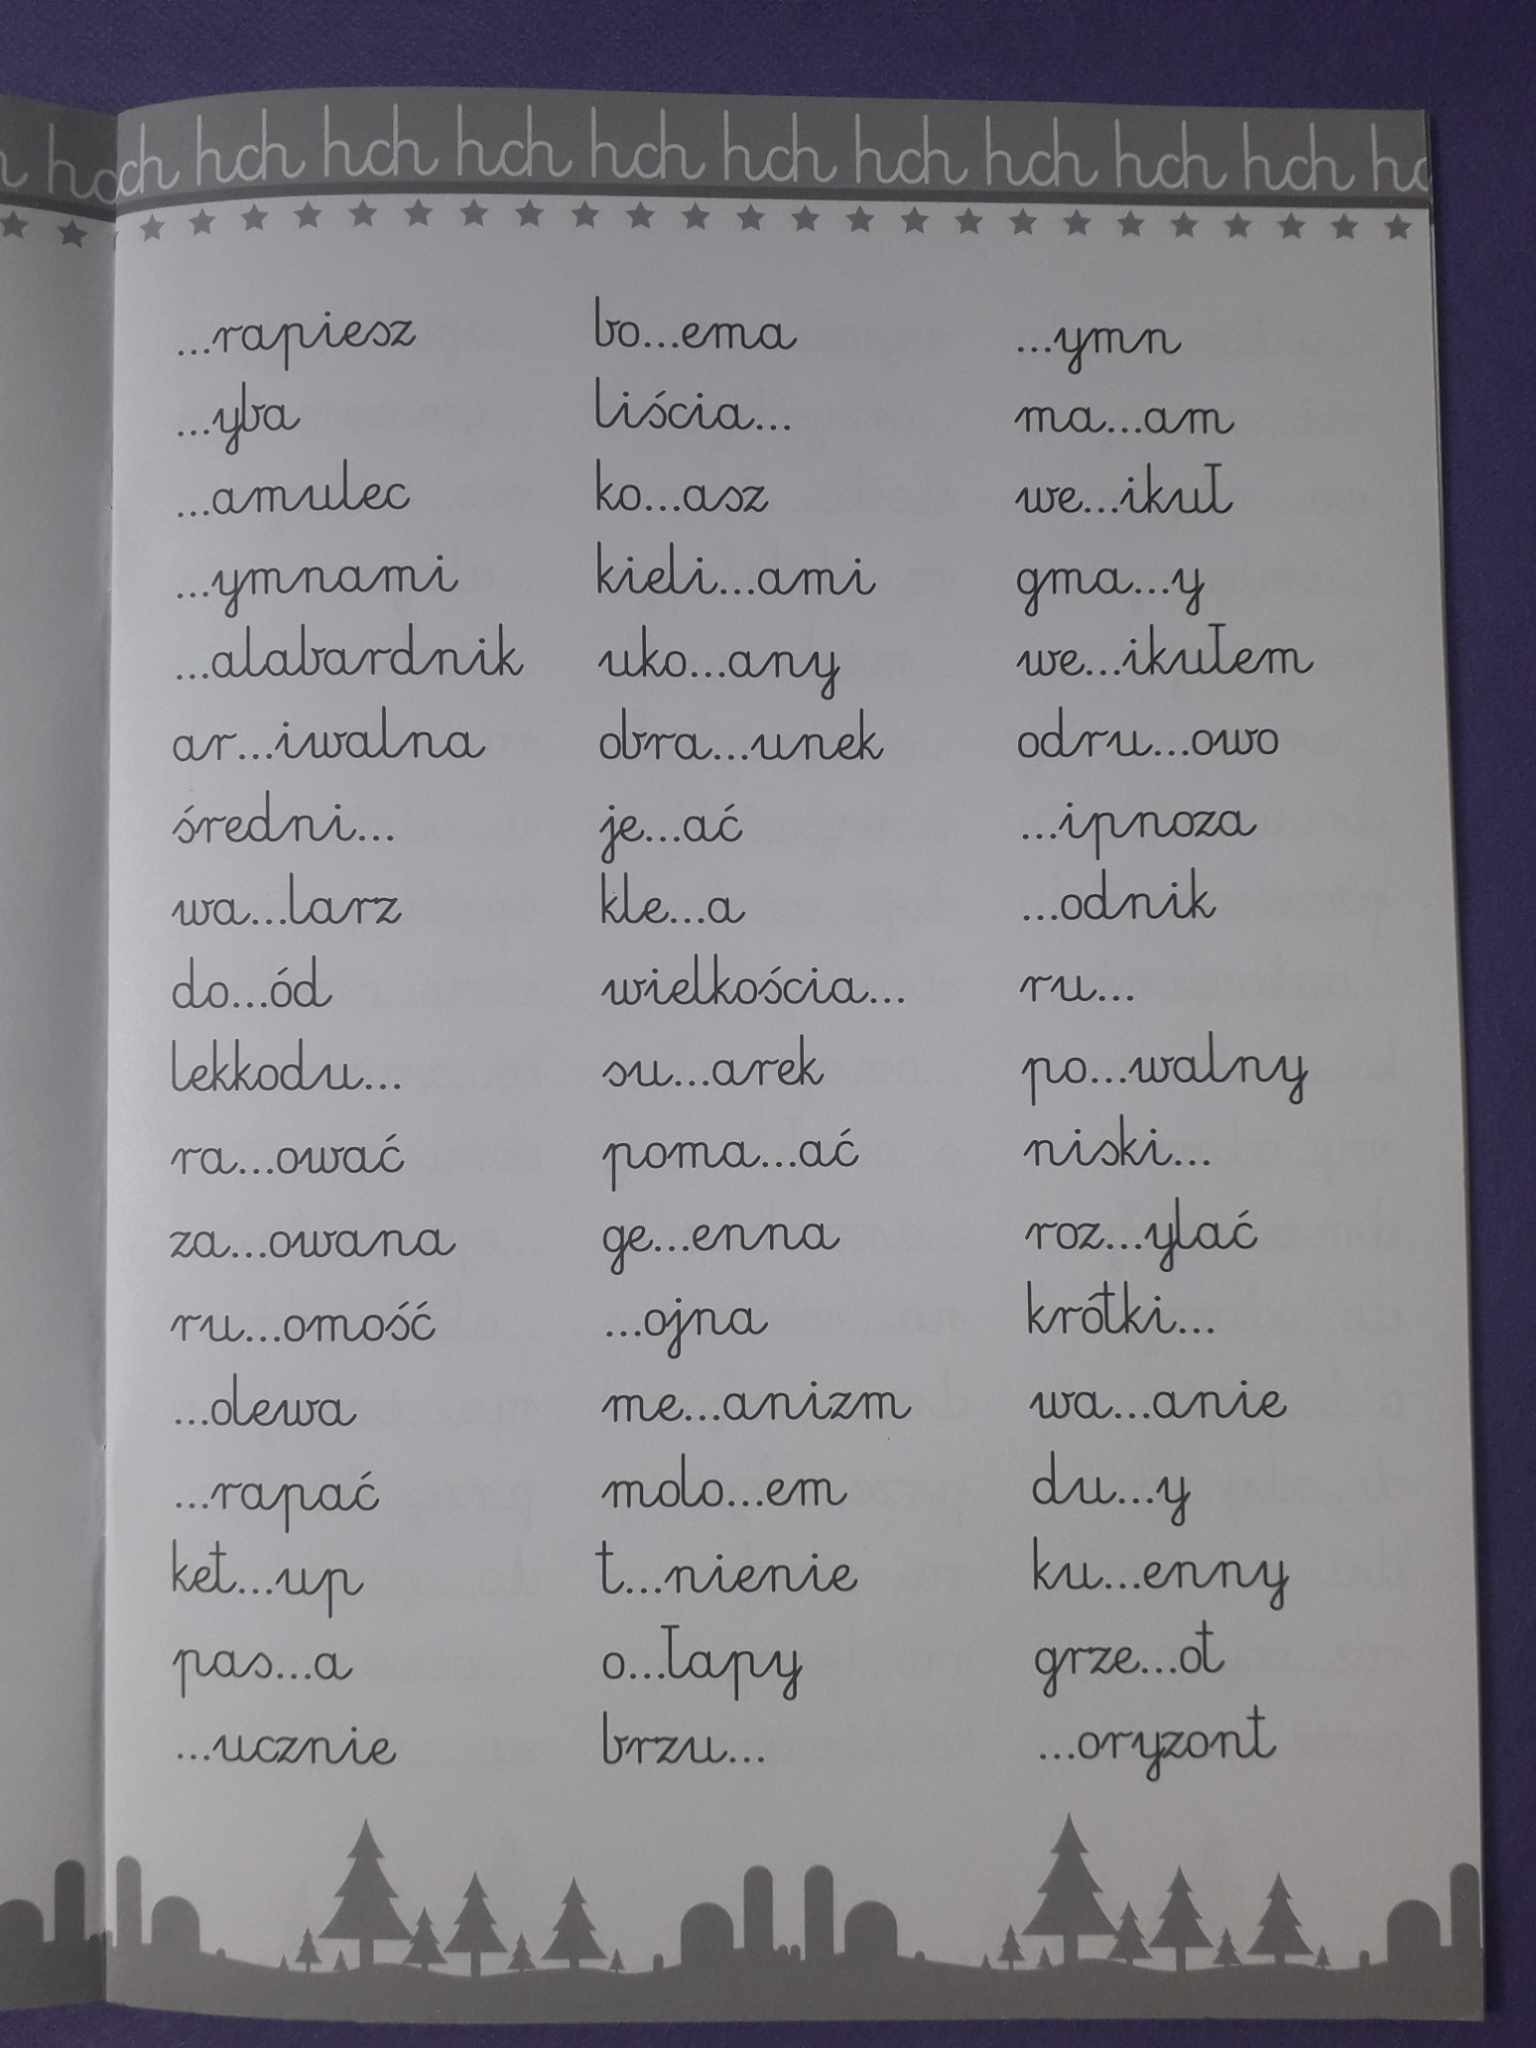 h hch hch hch hch hch hch hch hch hch hch hc
...rapiesz
...yba
...amulec
...ymnami
...alabardnik
ar...iwalna
średni...
wa...larz
do...ód
lekkodu...
ra...ować
za...owana
ru...omość
...olewa
...rapać
ket...up
pas...a
...ucznie
bo...ema
liścia...
ko...asz
kieli...ami
uko...any
obra...unek
je...ać
kle...a
wielkościa...
su...arek
poma...ać
ge...enna
...ojna
me...anizm
molo...em
t...nienie
o...łapy
brzu...
...ymn
ma...am
we...ikuł
gma...y
we...ikułem
odru...owo
...ipnoza
...odnik
ru...
po...walny
niski...
roz...ylać
krótki...
wa...anie
du...y
ku...enny
grze...ot
...oryzont